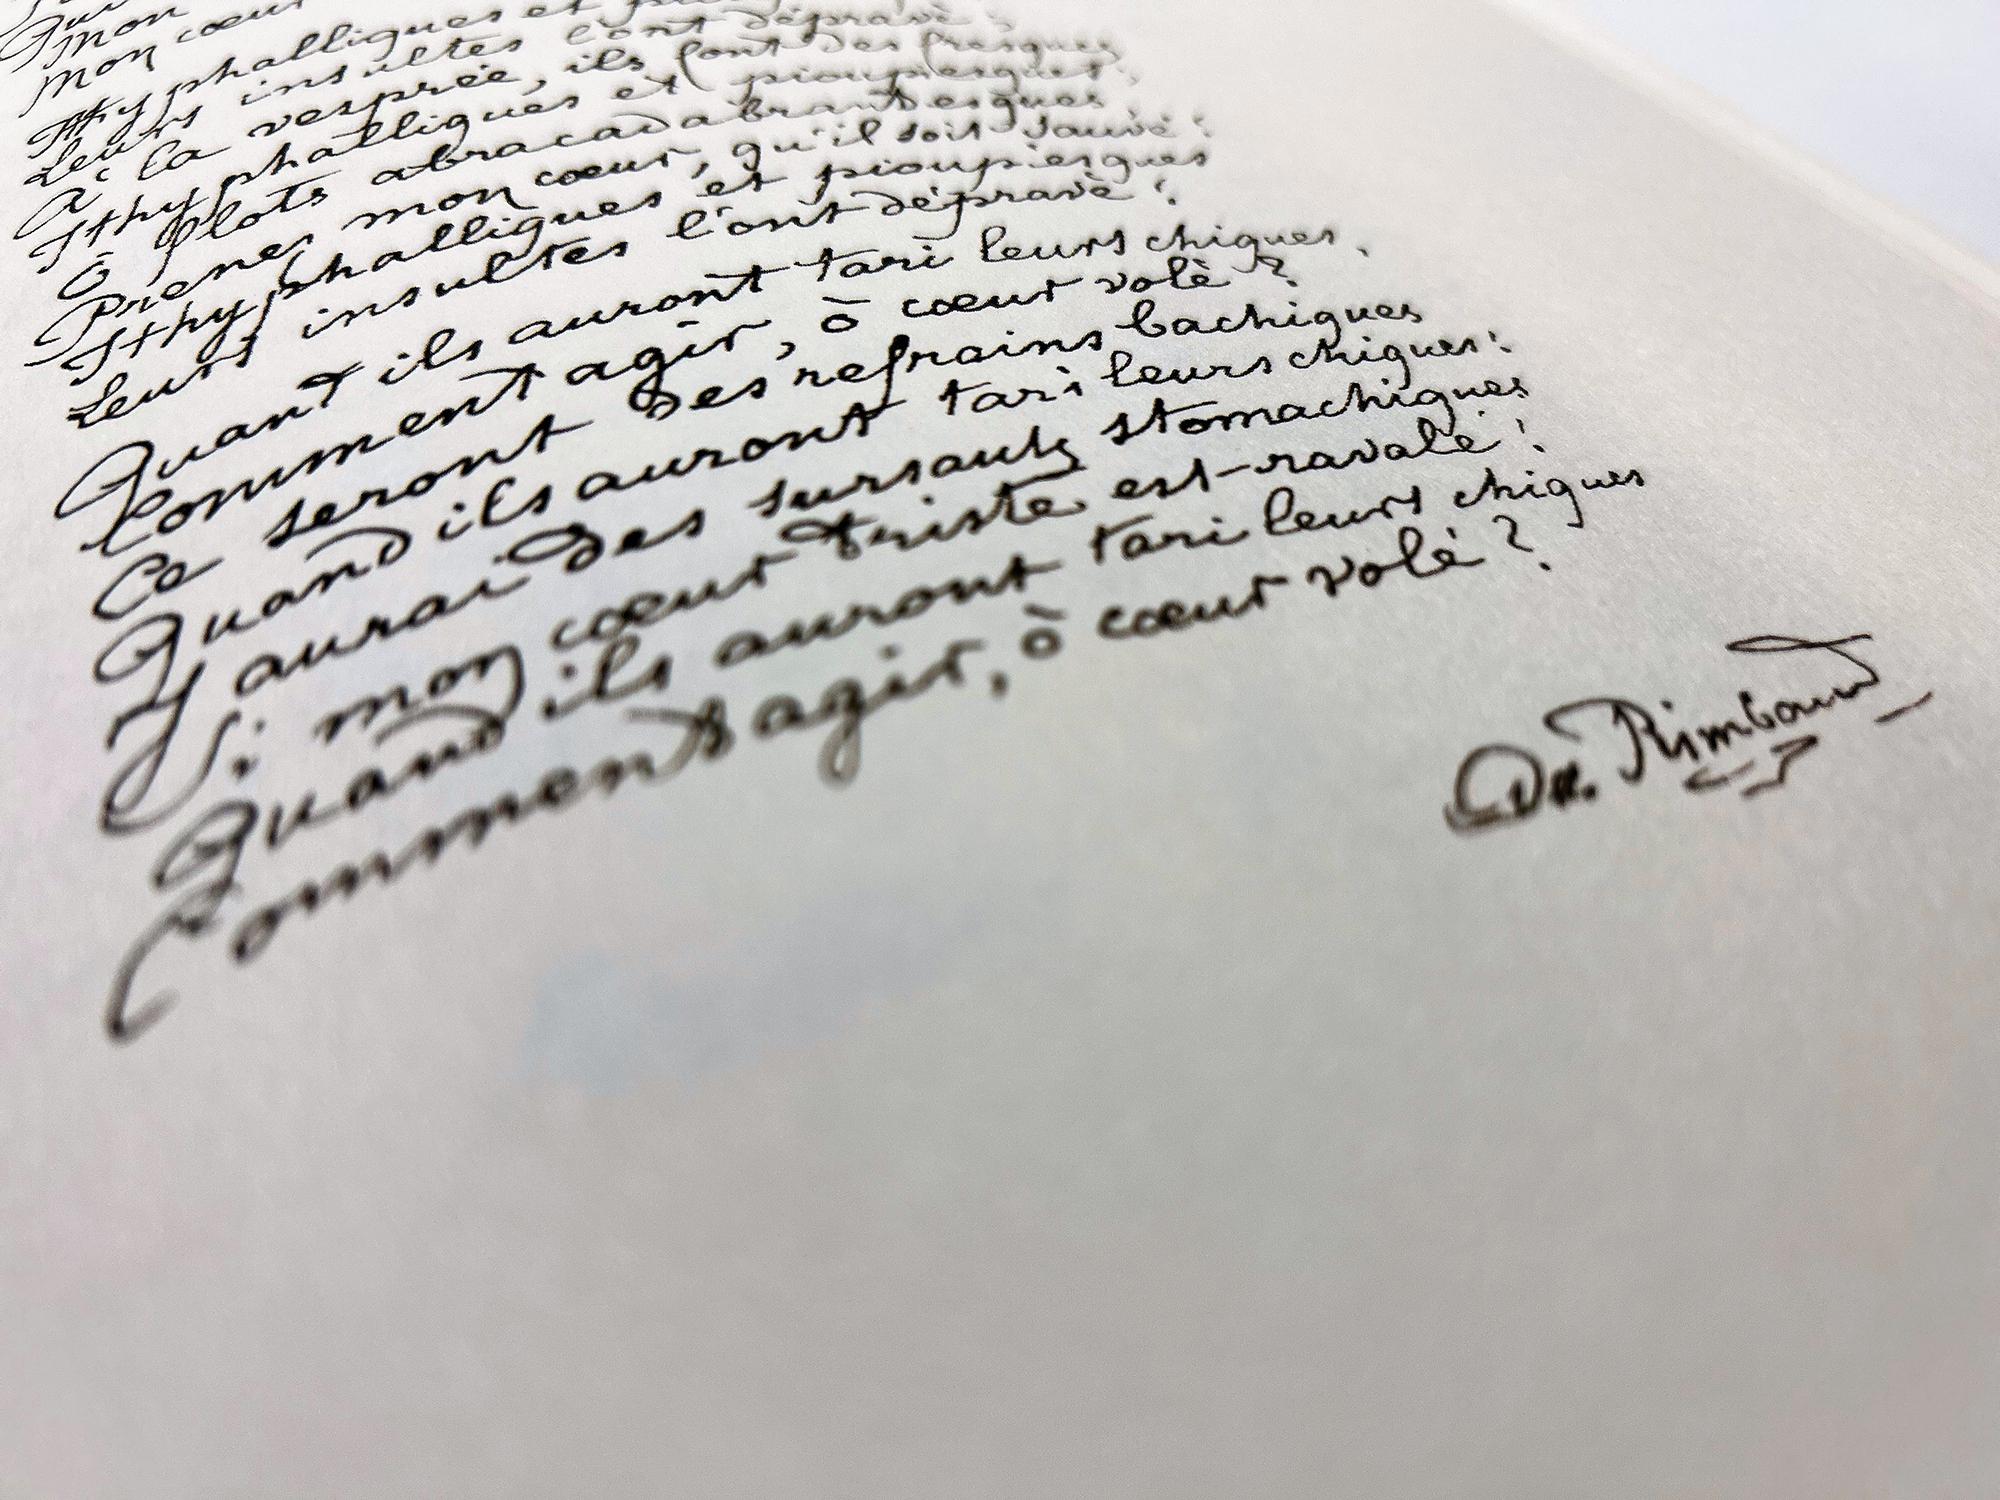 Mon cœur
Ithyphalliques et
Leurs insultes l'ont dépravé;
À la vesprée, ils font des fresques
Ithyphalliques et pioupiesques;
Ô flots abracadabrantesques
Prenez mon cœur, qu'il soit sauvé!
Ithyphalliques et pioupiesques
Leurs insultes l'ont dépravé!
Quand ils auront tari leurs chiques,
Comment agir, ô cœur volé?
Ce seront des refrains bachiques
Quand ils auront tari leurs chiques!
J'aurai des sursauts stomachiques
Si mon cœur triste est ravalé!
Quand ils auront tari leurs chiques
Comment agir, ô cœur volé?
Rimbaud